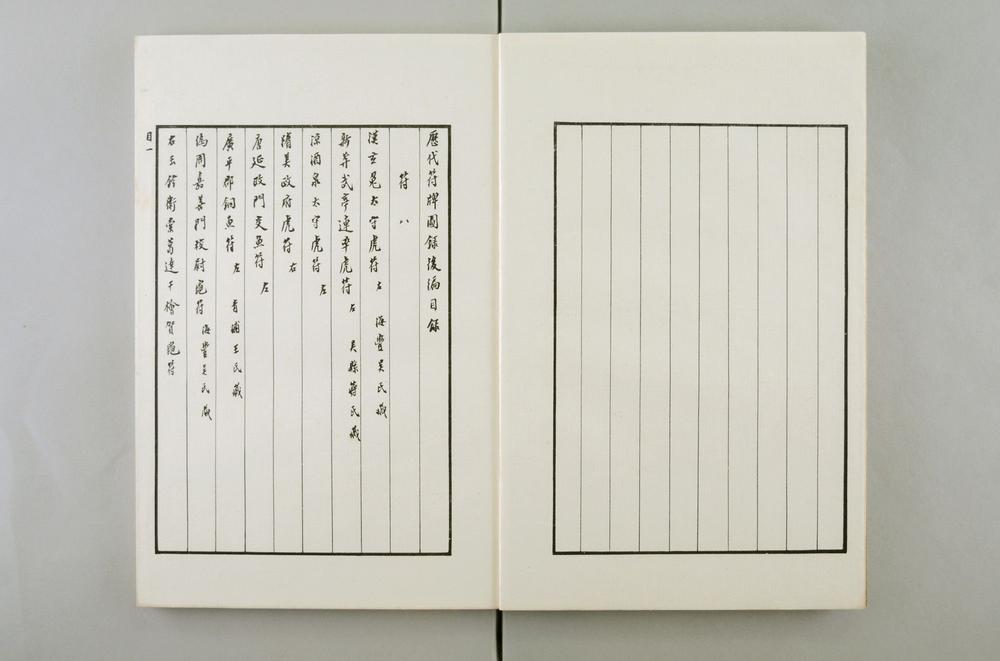 歷代符牌圖錄後編目錄
符 八
漢玄菟太守虎符 右 海豐吳氏藏
新莽武亭連率虎符 左 吳縣蔣氏藏
涼酒泉太守虎符 左
隋美政府虎符 右
唐延政門交魚符 左
廣平郡銅魚符 左 青浦王氏藏
偽周嘉善門校尉龜符 海豐吳氏藏
右玉鈐衛索葛達干檜賀龜符
目一